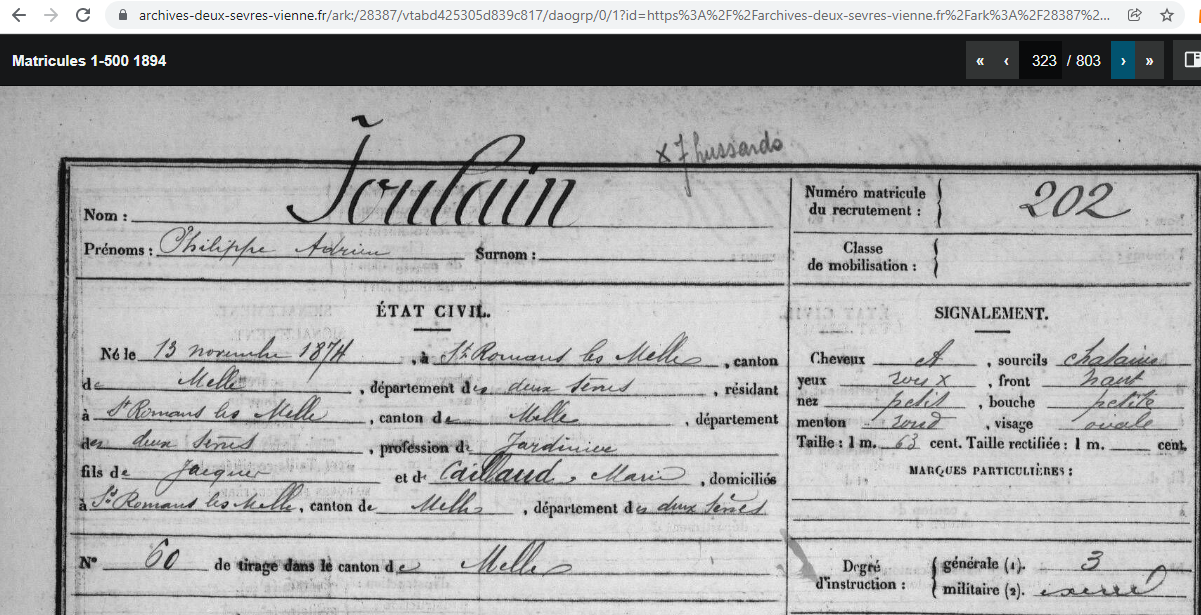 archives-deux-sevres-vienne.fr/ark:/28387/vtabd425305d839c817/daogrp/0/1?id=https%3A%2F%2Farchives-deux-sevres-vienne.fr%2Fark%3A%2F28387%2...
Matricules 1-500 1894
« ‹ 323 / 803 › »
x 7 hussards
Nom : Joulain
Prénoms : Philippe Adrien Surnom :
Numéro matricule
du recrutement : 202
Classe
de mobilisation :
ÉTAT CIVIL.
Né le 13 novembre 1874, à St Romans les Melle, canton
de Melle, département des deux Sèvres, résidant
à St Romans les Melle, canton de Melle, département
des deux Sèvres, profession de Jardinier
fils de Jacques et de Caillaud, Marie, domiciliés
à St Romans les Melle, canton de Melle, département des deux Sèvres
N° 60 de tirage dans le canton de Melle
SIGNALEMENT.
Cheveux et, sourcils chatains
yeux roux, front haut
nez petit, bouche petite
menton rond, visage ovale
Taille : 1 m. 63 cent. Taille rectifiée : 1 m. cent.
MARQUES PARTICULIÈRES :
Degré
d'instruction :
générale (1). 3
militaire (2). exercé